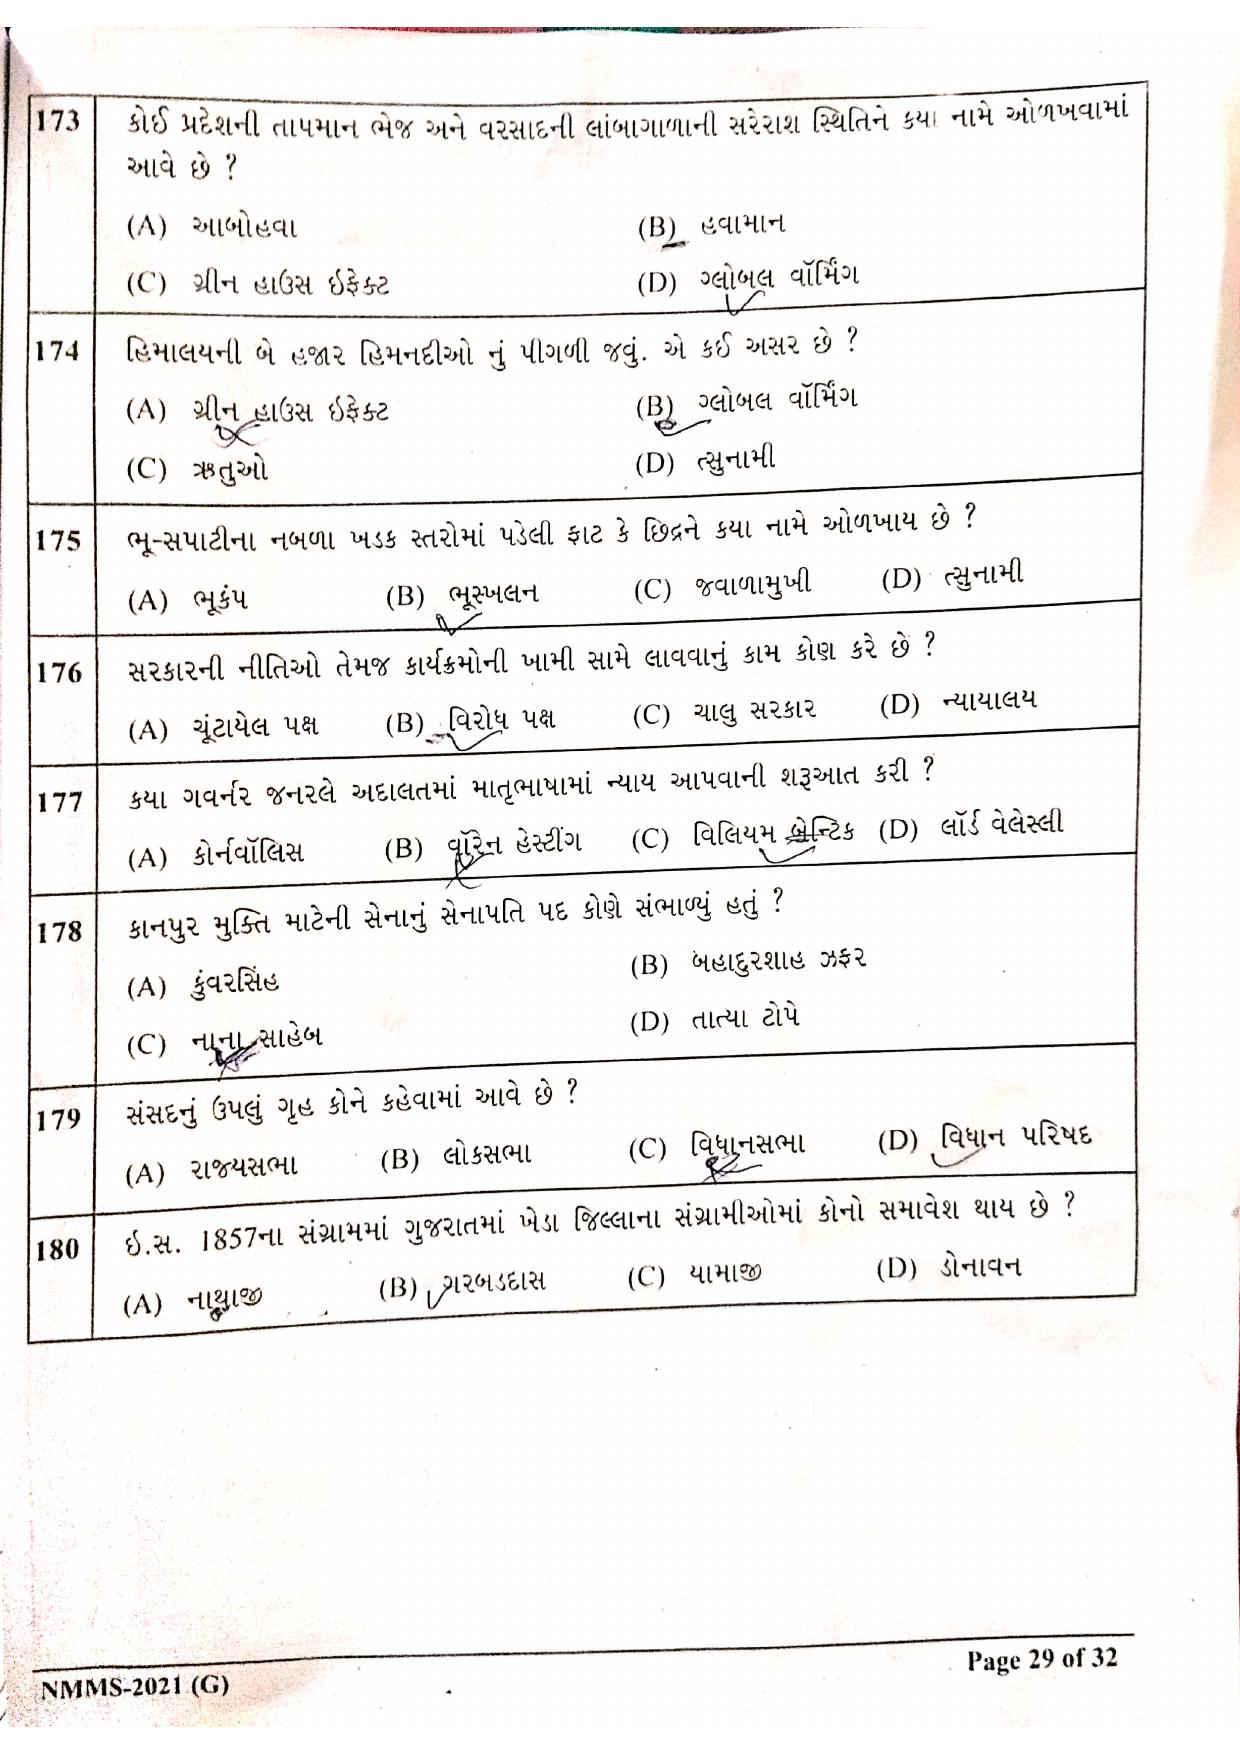 173 કોઈ પ્રદેશની તાપમાન ભેજ અને વરસાદની લાંબાગાળાની સરેરાશ સ્થિતિને કયા નામે ઓળખવામાં
આવે છે ?
(A) આબોહવા (B) હવામાન
(C) ગ્રીન હાઉસ ઇફેક્ટ (D) ગ્લોબલ વૉર્મિંગ
174 હિમાલયની બે હજાર હિમનદીઓ નું પીગળી જવું. એ કઈ અસર છે ?
(A) ગ્રીન હાઉસ ઇફેક્ટ (B) ગ્લોબલ વૉર્મિંગ
(C) ઋતુઓ (D) ત્સુનામી
175 ભૂ-સપાટીના નબળા ખડક સ્તરોમાં પડેલી ફાટ કે છિદ્રને કયા નામે ઓળખાય છે ?
(A) ભૂકંપ (B) ભૂસ્ખલન (C) જવાળામુખી (D) ત્સુનામી
176 સરકારની નીતિઓ તેમજ કાર્યક્રમોની ખામી સામે લાવવાનું કામ કોણ કરે છે ?
(A) ચૂંટાયેલ પક્ષ (B) વિરોધ પક્ષ (C) ચાલુ સરકાર (D) ન્યાયાલય
177 કયા ગવર્નર જનરલે અદાલતમાં માતૃભાષામાં ન્યાય આપવાની શરૂઆત કરી ?
(A) કોર્નવૉલિસ (B) વૉરેન હેસ્ટીંગ (C) વિલિયમ બેન્ટિક (D) લૉર્ડ વેલેસ્લી
178 કાનપુર મુક્તિ માટેની સેનાનું સેનાપતિ પદ કોણે સંભાળ્યું હતું ?
(A) કુંવરસિંહ (B) બહાદુરશાહ ઝફર
(C) નાના સાહેબ (D) તાત્યા ટોપે
179 સંસદનું ઉપલું ગૃહ કોને કહેવામાં આવે છે ?
(A) રાજ્યસભા (B) લોકસભા (C) વિધાનસભા (D) વિધાન પરિષદ
180 ઇ.સ. 1857ના સંગ્રામમાં ગુજરાતમાં ખેડા જિલ્લાના સંગ્રામીઓમાં કોનો સમાવેશ થાય છે ?
(A) નાથાજી (B) ગરબડદાસ (C) યામાજી (D) ડોનાવન
NMMS-2021 (G) Page 29 of 32